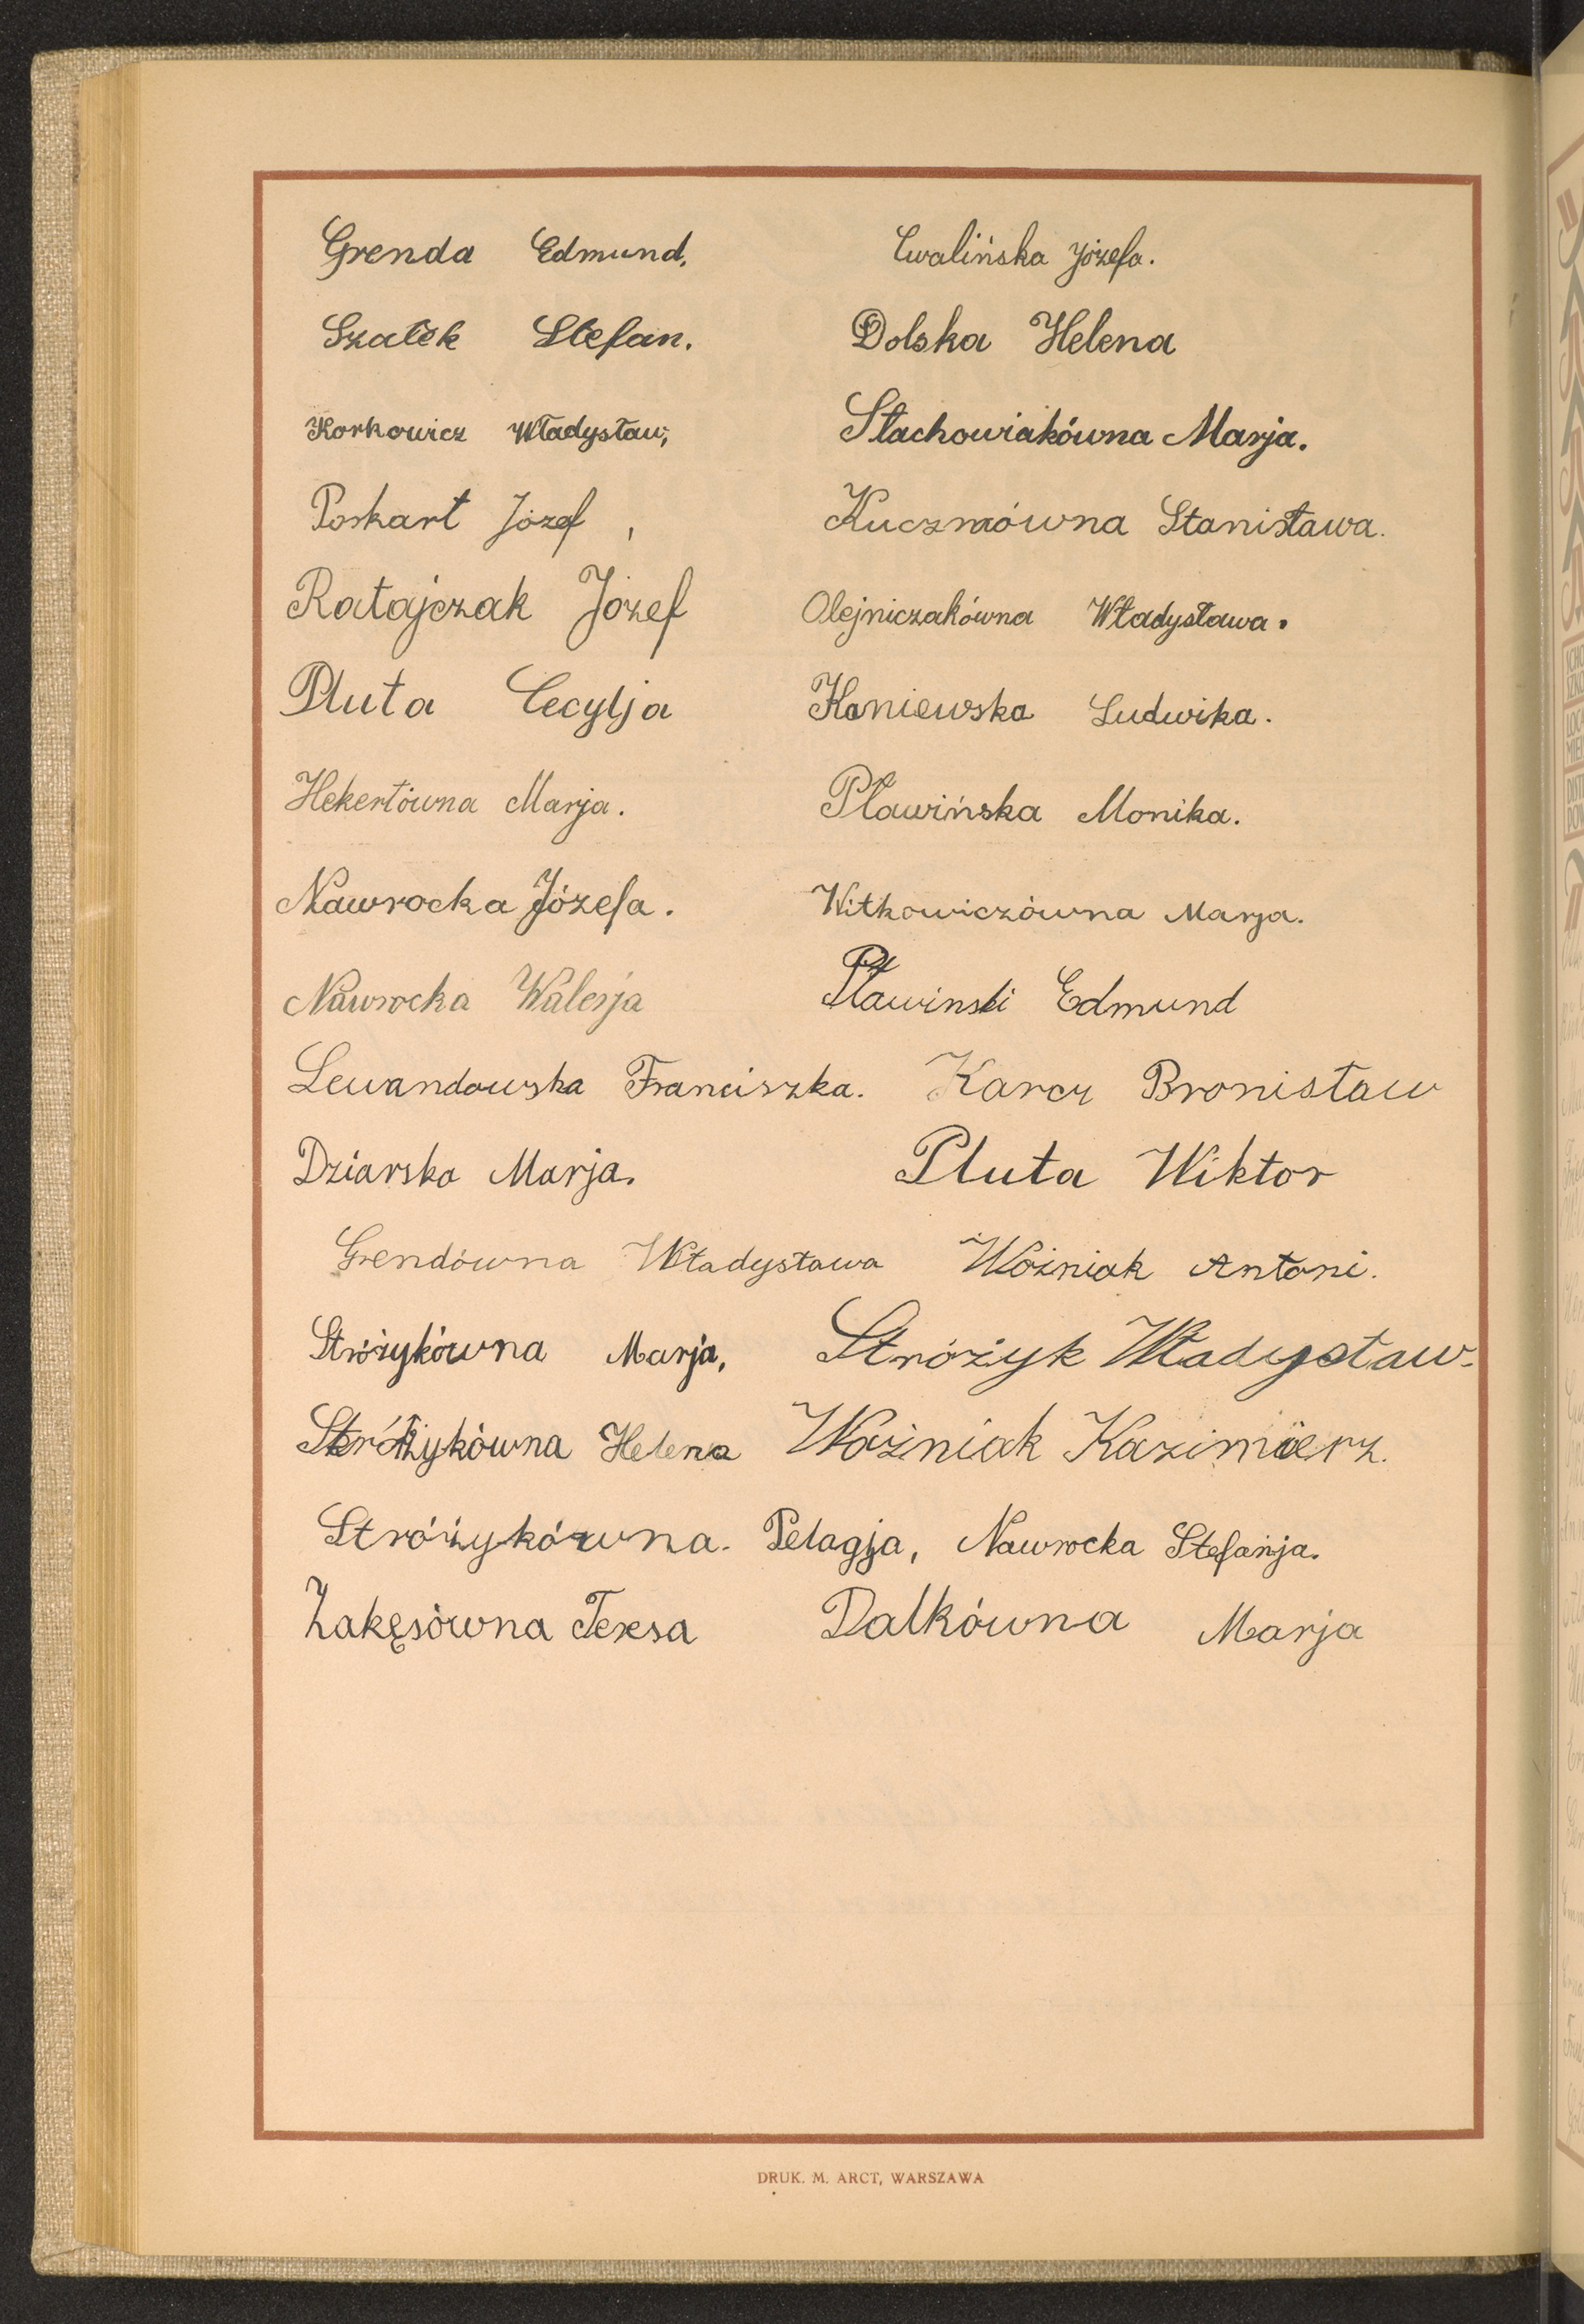 Grenda Edmund, Cwalińska Józefa.
Szałek Stefan. Dolska Helena
Korkowicz Władysław, Stachowiakówna Marja.
Poskart Józef, Kuczmówna Stanisława.
Ratajczak Józef Olejniczakówna Władysława.
Pluta Cecylja Kaniewska Ludwika.
Hekertówna Marja. Pławińska Monika.
Nawrocka Józefa. Witkowiczówna Marja.
Nawrocka Walerja Pławinski Edmund
Lewandowska Franciszka. Karcz Bronisław
Dziarska Marja. Pluta Wiktor
Grendówna Władysława Woźniak Antoni.
Stróżykówna Marja, Stróżyk Władysław.
Stróżykówna Helena Woźniak Kazimierz.
Stróżykówna. Pelagja, Nawrocka Stefanja.
Zakęsówna Teresa Dalkówna Marja
DRUK. M. ARCT, WARSZAWA